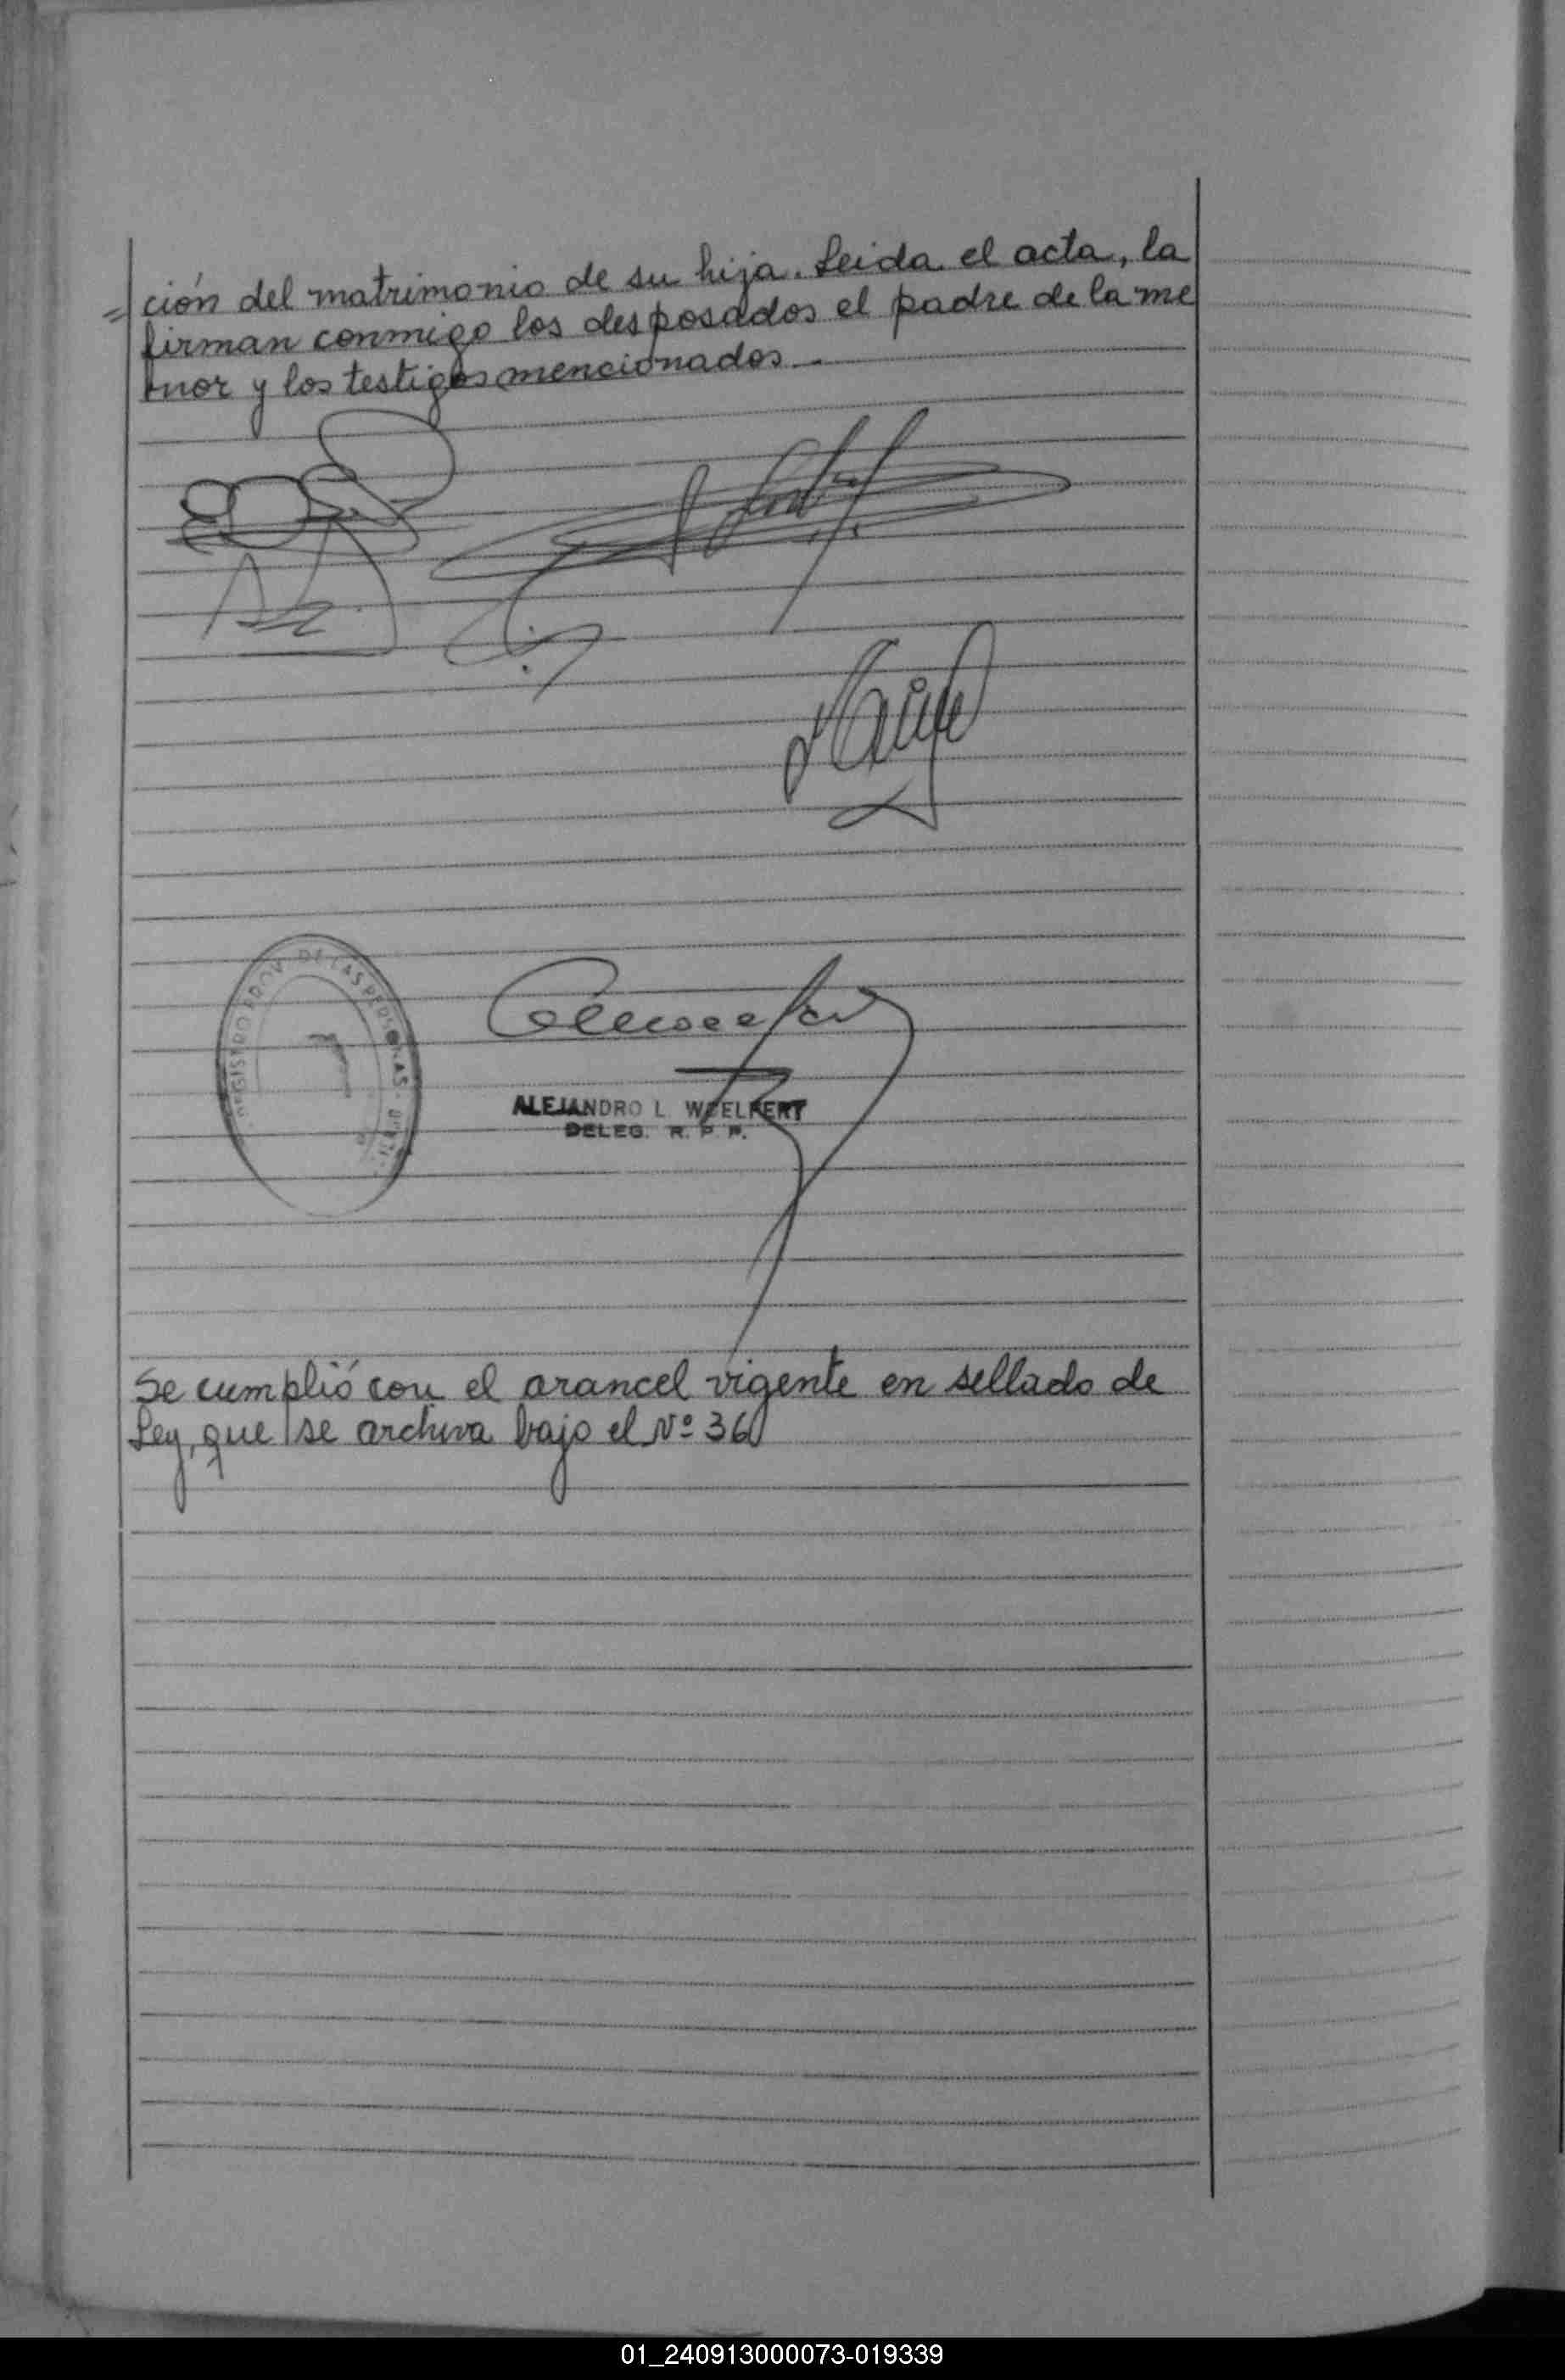 = ción del matrimonio de su hija. Leida el acta, la
firman conmigo los desposados el padre de la me
nor y los testigos mencionados.-
REGISTRO PROV. DE LAS PERSONAS
ALEJANDRO L. WOELFERT
DELEG. R. P. P.
Se cumplió con el arancel vigente en sellado de
Ley, que se archiva bajo el Nº 36
01_240913000073-019339